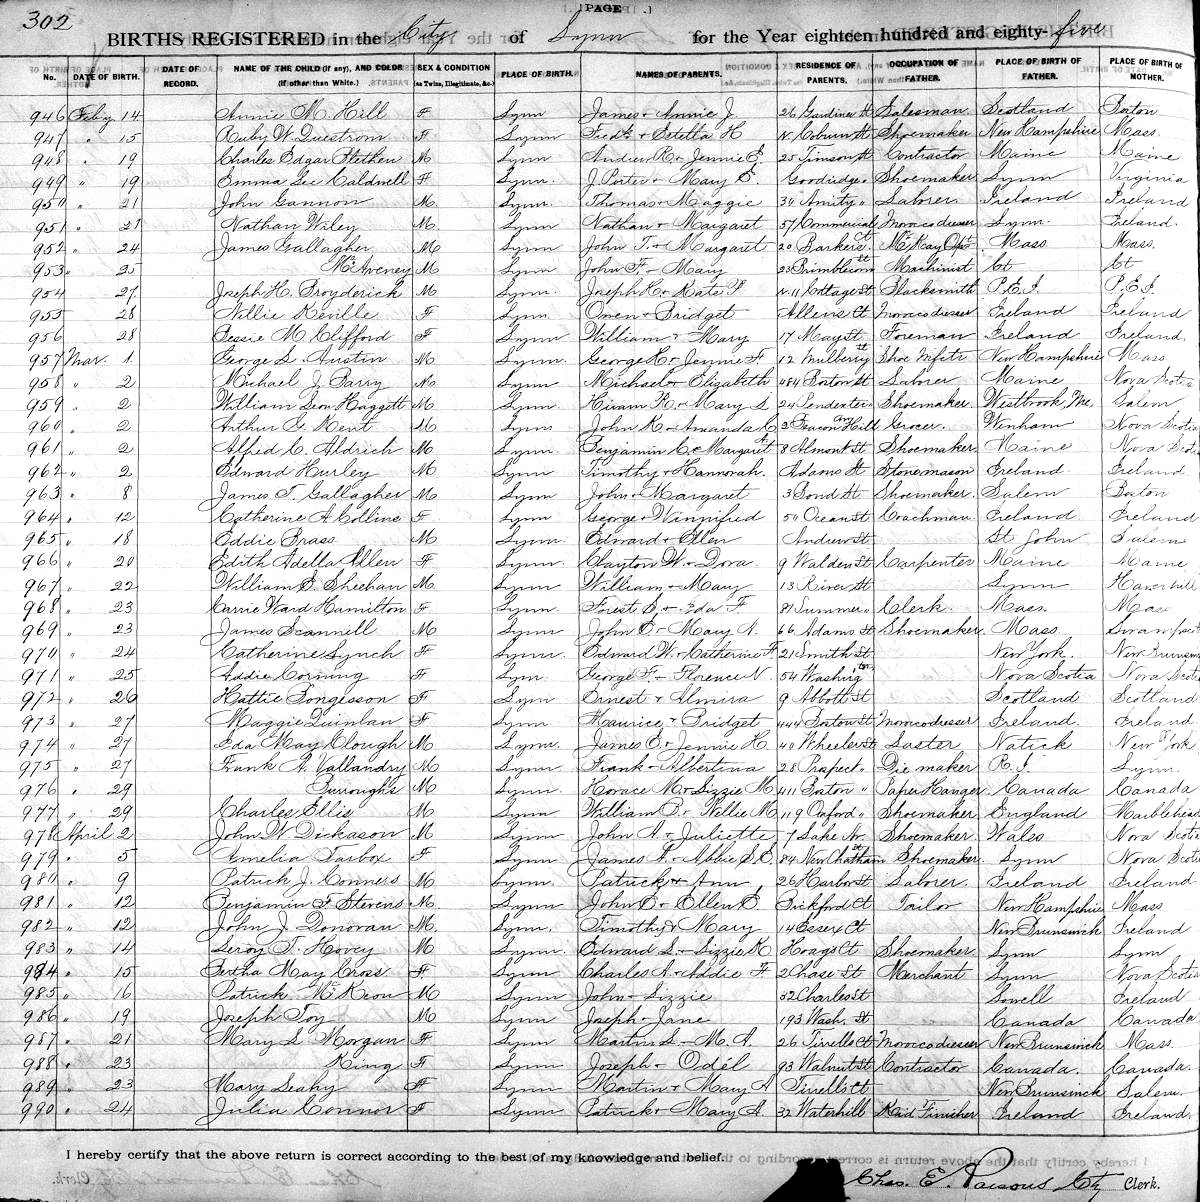 302
[PAGE .]
BIRTHS REGISTERED in the City of Lynn for the Year eighteen hundred and eighty-five
No. DATE OF BIRTH. DATE OF RECORD. NAME OF THE CHILD (if any), AND COLOR (if other than White.) SEX & CONDITION (as Twins, Illegitimate, &c.) PLACE OF BIRTH. NAMES OF PARENTS. RESIDENCE OF PARENTS. OCCUPATION OF FATHER. PLACE OF BIRTH OF FATHER. PLACE OF BIRTH OF MOTHER.
946 Feby 14 Annie M. Hill F Lynn James + Annie J 26 Gardiner St Salesman Scotland Boston
947 " 15 Ruby W. Questrom F Lynn Fredk + Estella H N. Coburn St Shoemaker New Hampshire Mass
948 " 19 Charles Edgar M Lynn Andrew R + Jennie E. 25 Timson St Contractor Maine Maine
949 " 19 Emma Lee Caldwell F Lynn J. Porter + Mary E. Goodridge " Shoemaker Lynn Virginia
950 " 21 John Gannon M Lynn Thomas + Maggie 34 Amity " Laborer Ireland Ireland
951 " 21 Nathan Wiley M Lynn Nathan + Margaret 57 Commercial Morocco dresser Lynn Ireland
952 " 24 James Gallagher M Lynn John T. + Margaret 20 Barkers Ct McKay Opr Mass. Mass.
953 " 25 McAveney M Lynn John F. + Mary 23 Brimblecom St Machinist Ct Ct
954 " 27 Joseph H. Broyderick M Lynn Joseph H + Kate F N. 11 Cottage St Blacksmith P.E.I. P.E.I.
955 " 28 Nellie Neville F Lynn Owen + Bridget Allens Ct Morocco dresser Ireland Ireland
956 " 28 Bessie M. Clifford F Lynn William + Mary 17 May St Foreman Ireland Ireland
957 Mar. 1 George L. Austin M Lynn George H + Jennie F 12 Mulberry St Shoe Mfctr New Hampshire Mass
958 " 2 Michael J. Barry M Lynn Michael + Elizabeth 484 Boston St Laborer Maine Nova Scotia
959 " 2 William Leon Haggett M Lynn Hiram R. + Mary L 24 Pendexter Shoemaker Westbrook Me Salem
960 " 2 Arthur G. Kent M Lynn John K. + Amanda C 2 Beacon Hill Grocer Wenham Nova Scotia
961 " 2 Alfred C. Aldrich M Lynn Benjamin C. + Margaret A 8 Almont St Shoemaker Maine Nova Scotia
962 " 2 Edward Hurley M Lynn Timothy + Hannorah Adams St Stonemason Ireland Ireland
963 " 8 James T. Gallagher M Lynn John + Margaret 3 Bond St Shoemaker Salem Boston
964 " 12 Catherine A. Collins F Lynn George + Winnifred 50 Ocean St Coachman Ireland Ireland
965 " 18 Eddie M Lynn Edward + Ellen Andrew St St John Salem
966 " 20 Edith Adella Allen F Lynn Clayton W. + Dora 9 Walden St Carpenter Maine Maine
967 " 22 William E. Sheehan M Lynn William + Mary 13 River St Lynn Haverhill
968 " 23 Carrie Ward Hamilton F Lynn Forest B. + Ida F 81 Summer " Clerk Mass Mass
969 " 23 James Scannell M Lynn John E. + Mary A. 66 Adams St Shoemaker Mass Swampscott
970 " 24 Catherine Lynch F Lynn Edward W. + Catherine F. 21 Smith St New York New Brunswick
971 " 25 Addie Corning F Lynn George F. + Florence N 54 Washington Nova Scotia Nova Scotia
972 " 26 Hattie F Lynn Ernest + Almira 9 Abbott St Scotland Scotland
973 " 27 Maggie Quinlan F Lynn Maurice + Bridget 444 Boston St Morocco dresser Ireland Ireland
974 " 27 Ida May Clough M Lynn James E. + Jennie H 40 Wheeler St Laster Natick New York
975 " 27 Frank A. Vallandry M Lynn Frank + Albertina 28 Prospect " Die maker R.I. Lynn
976 " 29 Burroughs M Lynn Horace M + Lizzie M 411 Boston " Paper Hanger Canada Canada
977 " 29 Charles Ellis M Lynn William B. + Nellie M 119 Oxford " Shoemaker England Marblehead
978 April 2 John W. Dickason M Lynn John A. + Juliette 7 Lake Av Shoemaker Wales Nova Scotia
979 " 5 Amelia Tarbox F Lynn James A. + Abbie S.E. 84 New Chatham St Shoemaker Lynn Nova Scotia
980 " 9 Patrick J. Conners M Lynn Patrick + Ann 26 Harbor St Laborer Ireland Ireland
981 " 12 Benjamin F. Stevens M Lynn John B. + Ellen E. Bickford Ct Tailor New Hampshire Mass
982 " 12 John J. Donovan M Lynn Timothy + Mary 14 Essex Ct New Brunswick Ireland
983 " 14 Leroy T. Hovey M Lynn Edward L. + Lizzie K Hoags Ct Shoemaker Lynn Lynn
984 " 15 Bertha May Cross F Lynn Charles A. + Addie F 2 Chase St Merchant Lynn Nova Scotia
985 " 16 Patrick McKeon M Lynn John + Lizzie 32 Charles St Lowell Ireland
986 " 19 Joseph Toy M Lynn Joseph + Jane 193 Wash. St Canada Canada
987 " 21 Mary L. Morgan F Lynn Martin L. + M. A. 26 Tirrells Ct Morocco dresser New Brunswick Mass.
988 " 23 King F Lynn Joseph + Odél 93 Walnut St Contractor Canada Canada
989 " 23 Mary Leahy F Lynn Martin + Mary A Tirrells Ct New Brunswick Salem
990 " 24 Julia Connor F Lynn Patrick + Mary A. 32 Waterhill Kid Finisher Ireland Ireland
I hereby certify that the above return is correct according to the best of my knowledge and belief.
Chas. E. Parsons City Clerk.